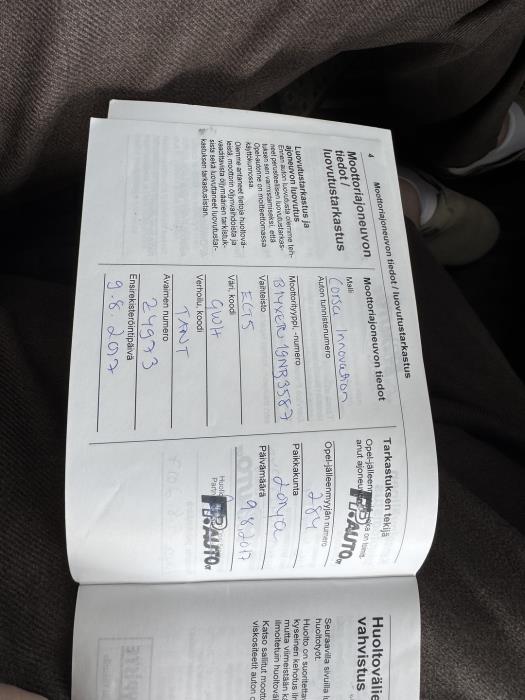 4
Moottoriajoneuvon tiedot / luovutustarkastus
Moottoriajoneuvon
tiedot /
luovutustarkastus
Luovutustarkastus ja
ajoneuvon luovutus
Ennen auton luovutusta olemme teh-
neet perusteellisen luovutustarkas-
tuksen sen varmistamiseksi, että
Opel-autonne on moitteettomassa
käyttökunnossa.
Olemme antaneet tietoja huoltovä-
leistä, moottorin öljynvaihdoista ja
vaadittavista öljymäärien tarkistuk-
sista sekä luovuttaneet luovutustar-
kastuksen tarkastuslistan.
Moottoriajoneuvon tiedot
Malli
Corsa Innovation
Auton tunnistenumero
Moottorityyppi, -numero
B14XER 19NB3587
Vaihteisto
Väri, koodi
GWH
Verhoilu, koodi
TANT
Avaimen numero
24973
Ensirekisteröintipäivä
9.8.2017
Tarkastuksen tekijä
Opel-jälleenmyyjän numero
784
Paikkakunta
Päivämäärä
9.8.2017
AUTO
AUTO
Huoltoväli
vahvistus
Seuraavilla sivuilla
huoltotyöt.
Huolto on suoritettav
kyseinen kehotus
mutta viimeistään
ilmoitetuin huoltoväl
Katso sallitut moott
viskositeetit auton